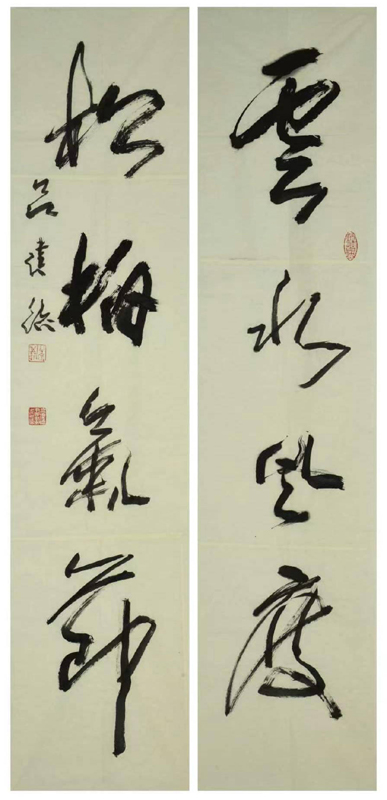 雲水風度
松梅氣節
吕建德